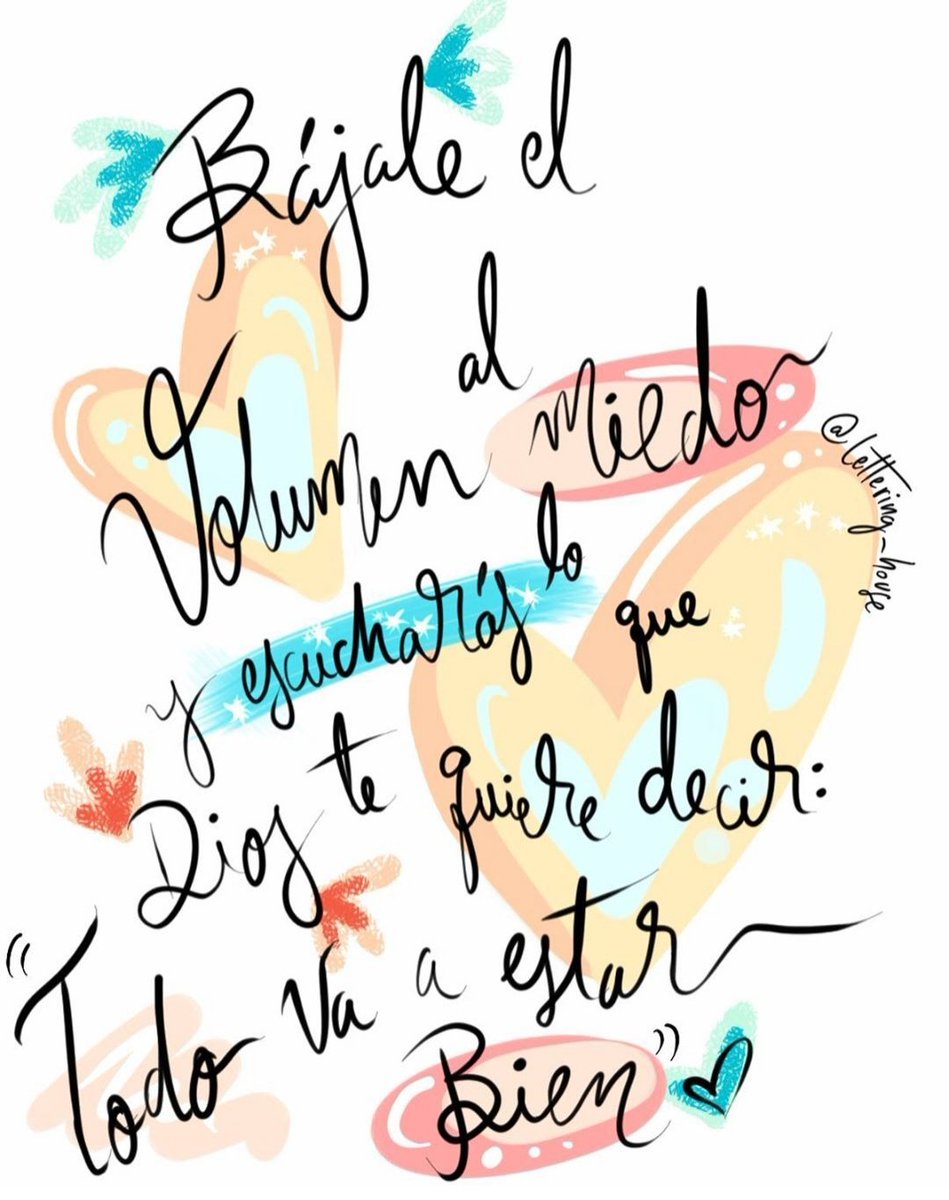 Bájale el
Volumen al miedo
@lettering_house
y escucharás lo que
Dios te quiere decir:
"Todo va a estar
Bien"